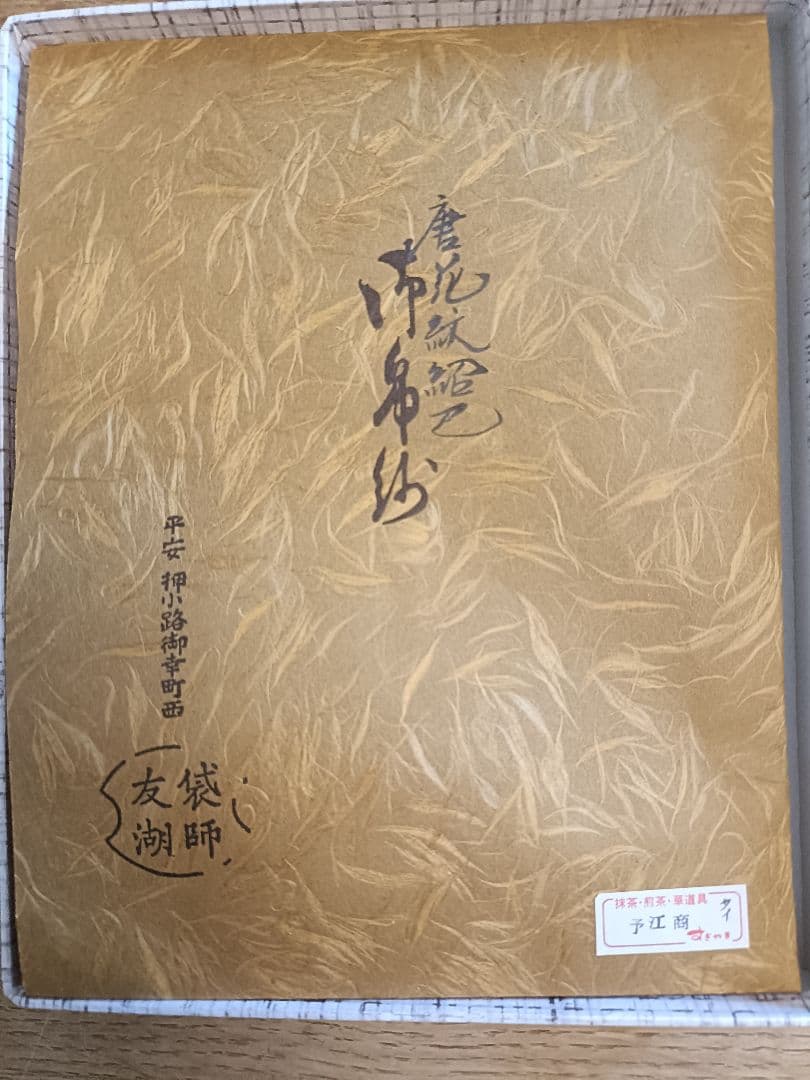 唐花紋紹巴
御帛紗
平安 押小路御幸町西
袋師
友湖
抹茶・煎茶・華道具
予江商
タイ